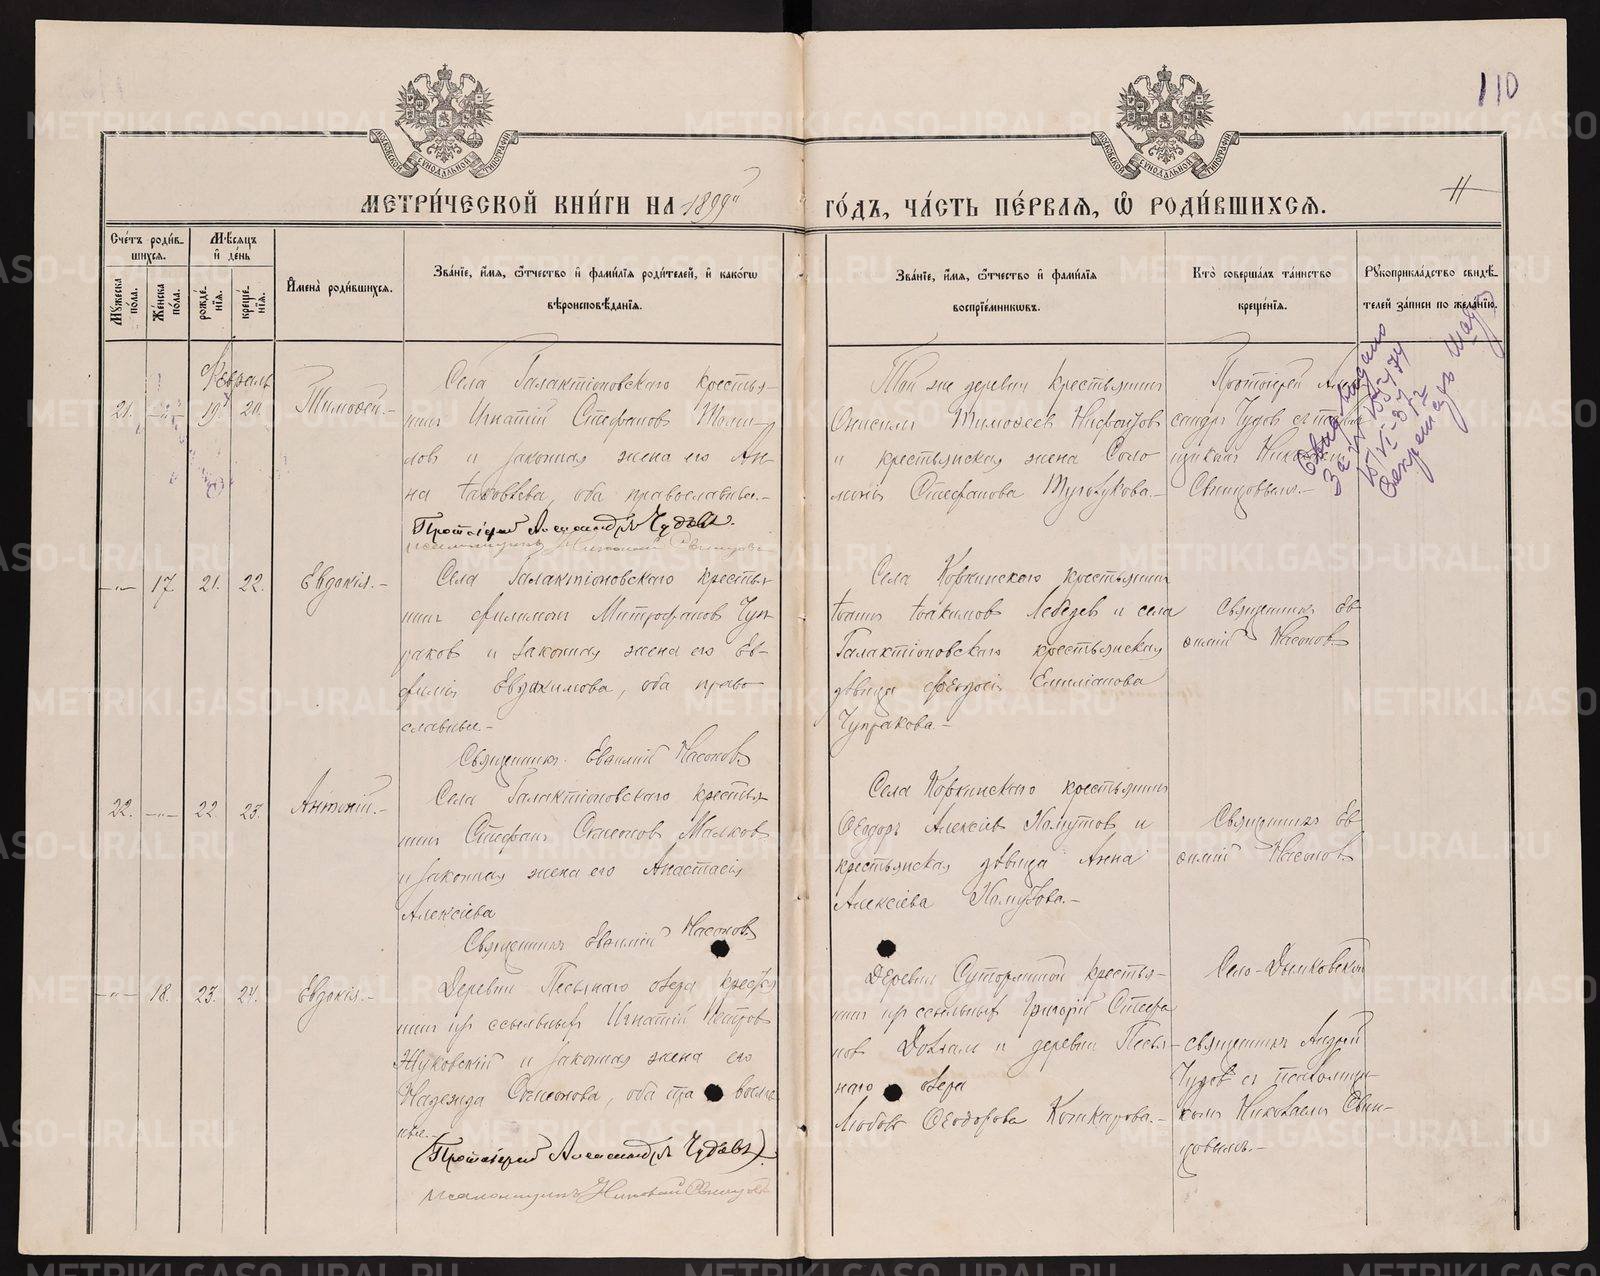 110
МЕТРИ́ЧЕСКОЙ КНИ́ГИ НА 1899й ГО́ДЪ, ЧА́СТЬ ПЕ́РВАЯ, Ѡ РОДИ́ВШИХСЯ.
11
Сче́тъ роди́в-
шихся.
Мѣ́сяцъ
и де́нь
Му́жеска
по́ла.
Же́нска
по́ла.
рожде́-
нія.
креще́-
нія.
Имена̀ роди́вшихся.
Зва́ніе, и́мя, ѻ҆́тчество и фами́лія роди́телей, и како́гѡ
вѣроисповѣ́данія.
Зва́ніе, и́мя, ѻ҆́тчество и фами́лія
воспріе́мниковъ.
Кто̀ соверша́лъ та́инство
креще́нія.
Рукоприкла́дство свидѣ́-
телей за́писи по жела́нію.
Февраль
21. -„- 19. 20.
Тимоѳей.-
Села Галактіоновскаго крестья-
нинъ Игнатій Стефановъ
и законная жена его Ан-
на Іаковлева, оба православные.-
Протоіерей Александръ Чудовъ.
псаломщикъ Николай Свинцовъ
Той же деревни крестьянинъ
Онисимъ Тимоѳеевъ
и крестьянская жена Соло-
монія Стефанова
Протоіерей Алек-
сандръ Чудовъ съ псалом-
щикомъ Николаемъ
Свинцовымъ.-
-„- 17 21. 22.
Евдокія.-
Села Галактіоновскаго крестья-
нинъ Филимонъ Митрофановъ Чуп-
раковъ и законная жена его Ев-
фимія Евдокимова, оба право-
славные.-
Священникъ Евѳимій Насоновъ
Села Ковкинскаго крестьянинъ
Іоаннъ Іоакимовъ Лебедевъ и села
Галактіоновскаго крестьянская
дѣвица Ѳеодосія Емиліанова
Чупракова.-
Священникъ Ев-
ѳимій Насоновъ
22. -„- 22. 23.
Антоній.-
Села Галактіоновскаго крестья-
нинъ Стефанъ Симеоновъ Малковъ
и законная жена его Анастасія
Алексіева
Священникъ Евѳимій Насоновъ
Села Ковкинскаго крестьянинъ
Ѳеодоръ Алексіевъ Хомутовъ и
крестьянская дѣвица Анна
Алексіева Хомутова.-
Священникъ Ев-
ѳимій Насоновъ
-„- 18. 23. 24.
Евдокія.-
Деревни Песьянаго озера кресть-
нинъ изъ ссыльныхъ Игнатій Петровъ
Жуковскій и законная жена его
Надежда Симеонова, оба пра вослав-
ные.-
(Протоіерей Александръ Чудовъ).
псаломщикъ Николай Свинцовъ
Деревни Суторминой крестья-
нинъ изъ ссыльныхъ Григорій Стефа-
новъ и деревни Песья-
наго озера
Любовь Ѳеодорова
Село-Дымковскій
священникъ Андрей
Чудовъ съ псаломщи-
комъ Николаемъ Свин-
цовымъ.-
METRIKI.GASO-URAL.RU